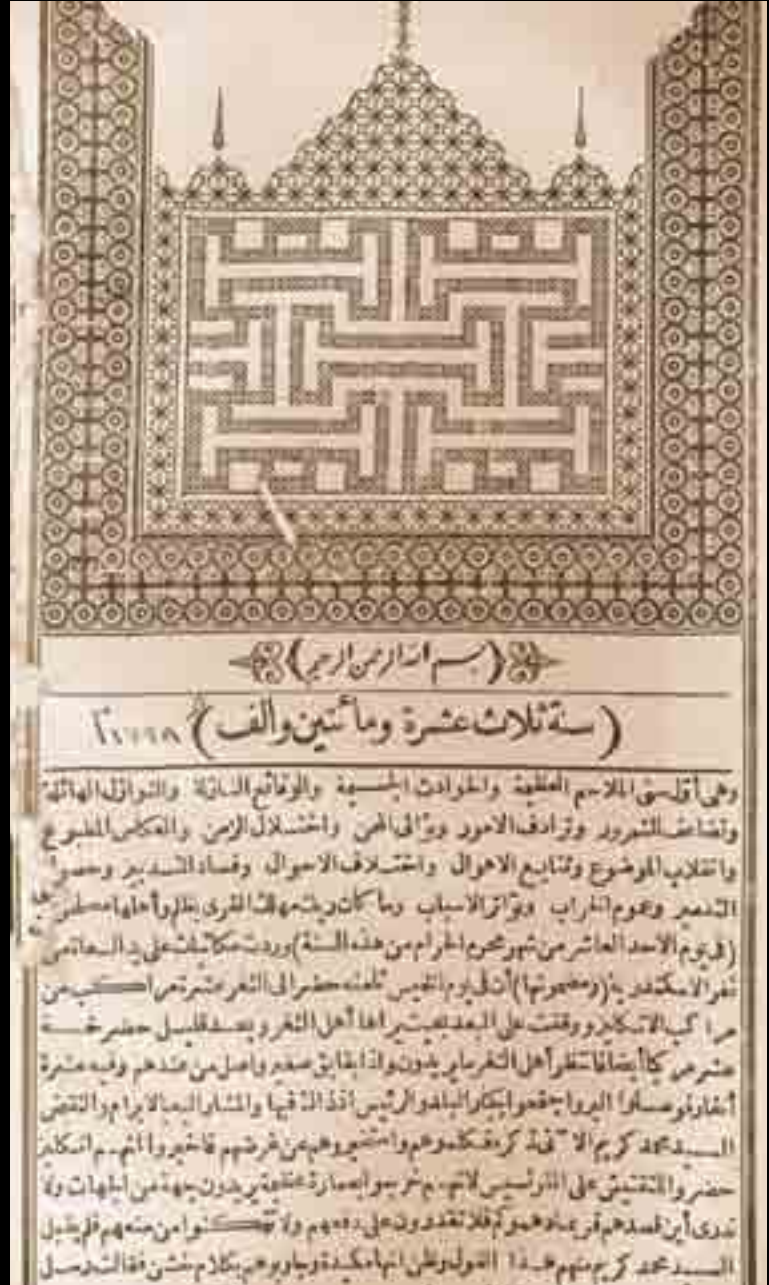 (بسم الله الرحمن الرحيم)
(سنة ثلاث عشرة ومائتين وألف) ١٧٩٨
وهى أول سنى الملاحم العظيمة والحوادث الجسيمة والوقائع النازلة والنوازل الهائلة
وتضاعف الشرور وترادف الامور وتوالى المحن واختلال الزمن وانعكاس المطبوع
وانقلاب الموضوع وتتابع الاهوال واختلاف الاحوال وفساد التدبير وحصول
التدمير وعموم الخراب وتواتر الاسباب وما كان ربك مهلك القرى بظلم وأهلها مصلحون
(فى يوم الاحد العاشر من شهر محرم الحرام من هذه السنة) وردت مكاتبات على يد السعاة من
ثغر الاسكندرية (ومضمونها) أن فى يوم الخميس ثامنه حضر الى الثغر عشرة مراكب من
مراكب الانكليز ووقفت على البعد بحيث يراها أهل الثغر وبعد قليل حضر خمسة
عشر مركبا أيضا فانتظر أهل الثغر ما يريدون واذا بقايق صغير واصل من عندهم وفيه عشرة
أنفار فوصلوا البر واجتمعوا بكبار البلد والرئيس اذ ذاك فيها والمشار اليه بالابرام والنقض
السيد محمد كريم الآتى ذكره فكلموهم واستخبروهم عن غرضهم فأخبروا أنهم انكليز
حضروا للتفتيش على الفرنسيس لانهم خرجوا بعمارة عظيمة يريدون جهة من الجهات ولا
ندرى أين قصدهم فربما دهموكم فلا تقدرون على دفعهم ولا تتمكنوا من منعهم فلم يقبل
السيد محمد كريم منهم هذا القول وظن أنها مكيدة وجاوبوهم بكلام خشن فقالت رسل